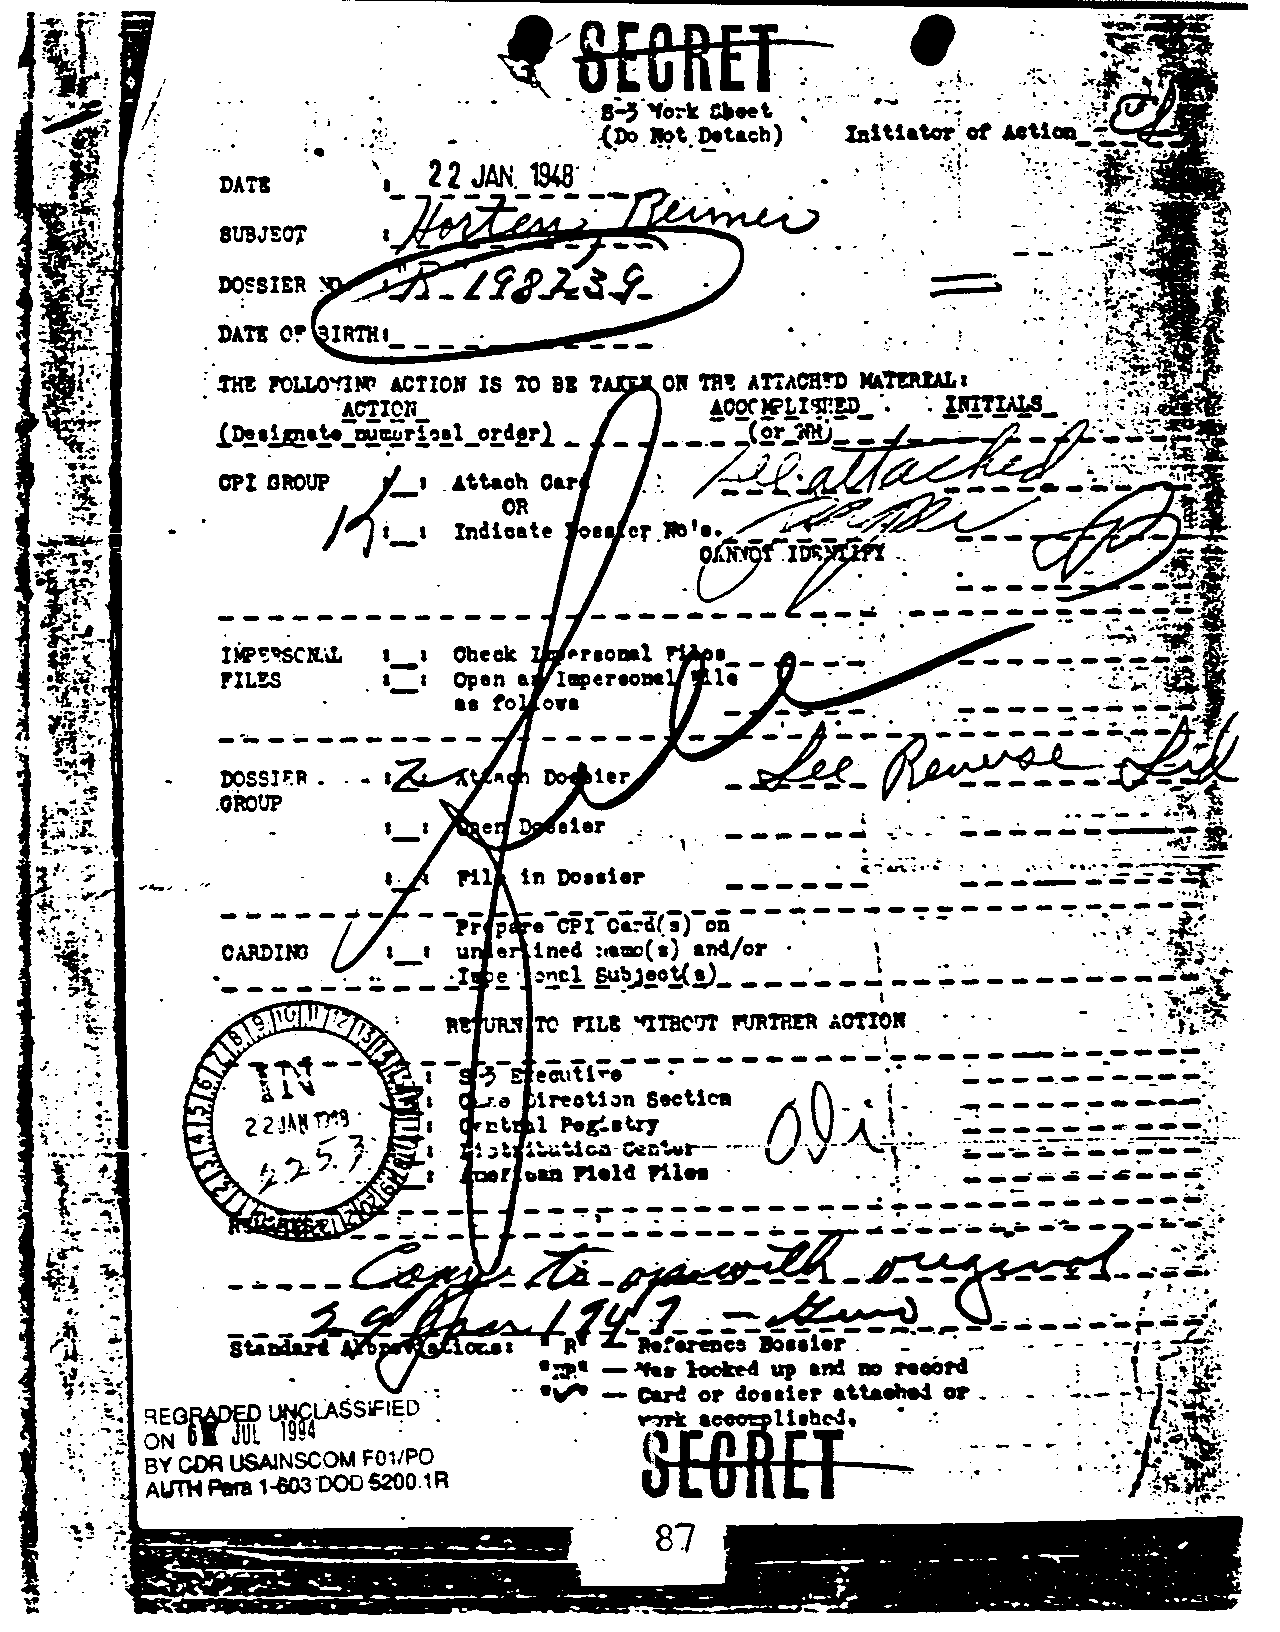 SECRET
S-3 Work Sheet
(Do Not Detach) Initiator of Action
DATE : 22 JAN. 1948
SUBJECT : Horten, Reimer
DOSSIER NO. R-198239
DATE OF BIRTH:
THE FOLLOWING ACTION IS TO BE TAKEN ON THE ATTACHED MATERIAL:
ACTION ACCOMPLISHED INITIALS
(Designate numerical order) (or NR)
CPI GROUP : : Attach Card See attached
OR
1 : : Indicate Dossier No's. paper
CANNOT IDENTIFY
IMPERSONAL : : Check Impersonal Files
FILES : : Open an Impersonal File
as follows
DOSSIER :2: Attach Dossier See Reverse
GROUP
: : Open Dossier
: : File in Dossier
Prepare CPI Card(s) on
CARDING : : underlined name(s) and/or
Impersonal Subject(s)
RETURN TO FILE WITHOUT FURTHER ACTION
: S-3 Executive
: Case Direction Section
: Central Registry
: Distribution Center
: American Field Files
IN
22 JAN 1948
2253
REMARKS:
Copy to op with original
29 Jan 1947
Standard Abbreviations: "R" — Reference Dossier
"NR" — Was looked up and no record
"✓" — Card or dossier attached or
work accomplished.
REGRADED UNCLASSIFIED
ON JUL 1994
BY CDR USAINSCOM F01/PO
AUTH Para 1-603 DOD 5200.1R
SECRET
87